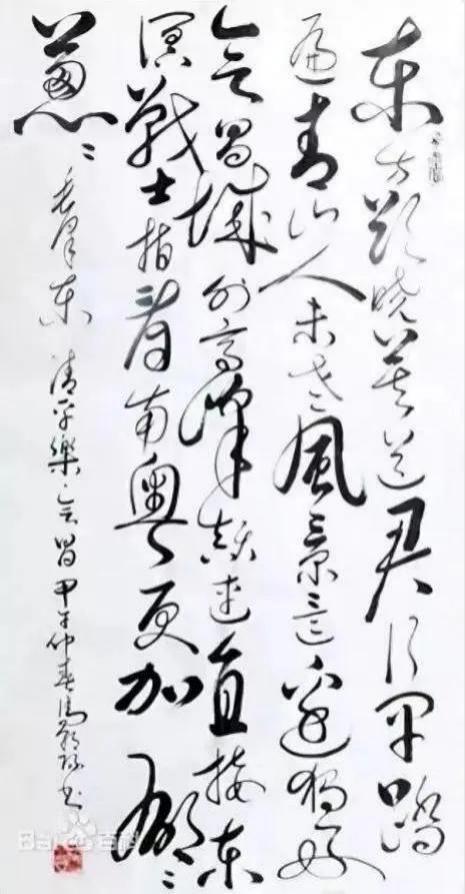 东方欲晓莫道君行早踏
遍青山人未老風景這边独好
会昌城外高峰颠连直接东
溟戰士指看南粤更加郁々
葱々
毛泽东 清平樂·会昌 甲午仲春 书
Bai百科